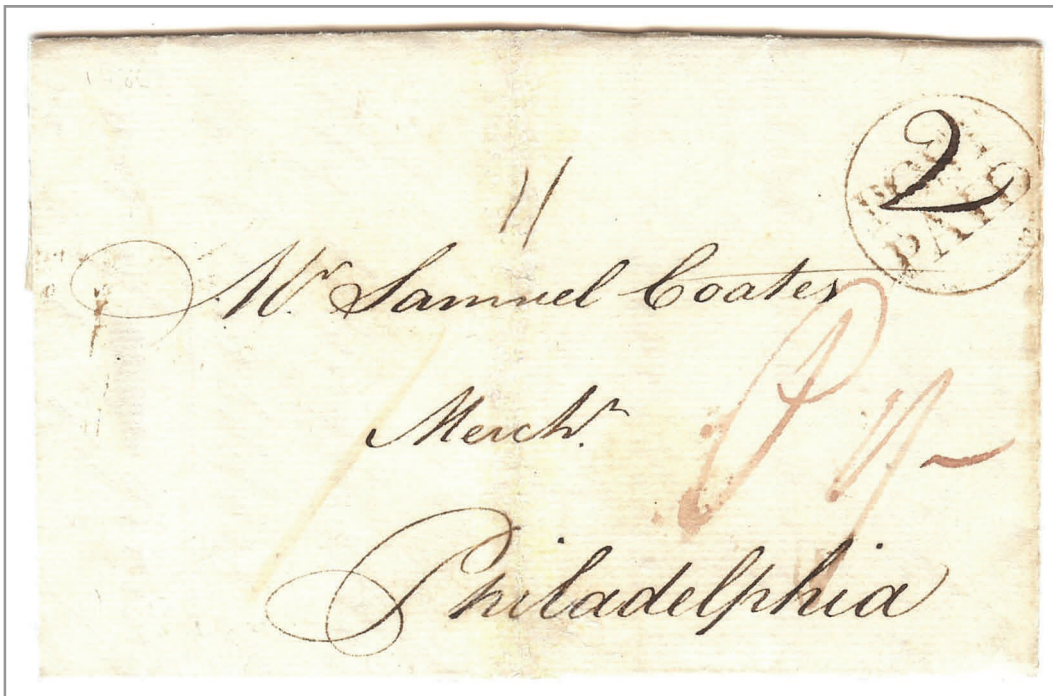 2
POST
PAID
11
Mr. Samuel Coates
Mercht.
Philadelphia